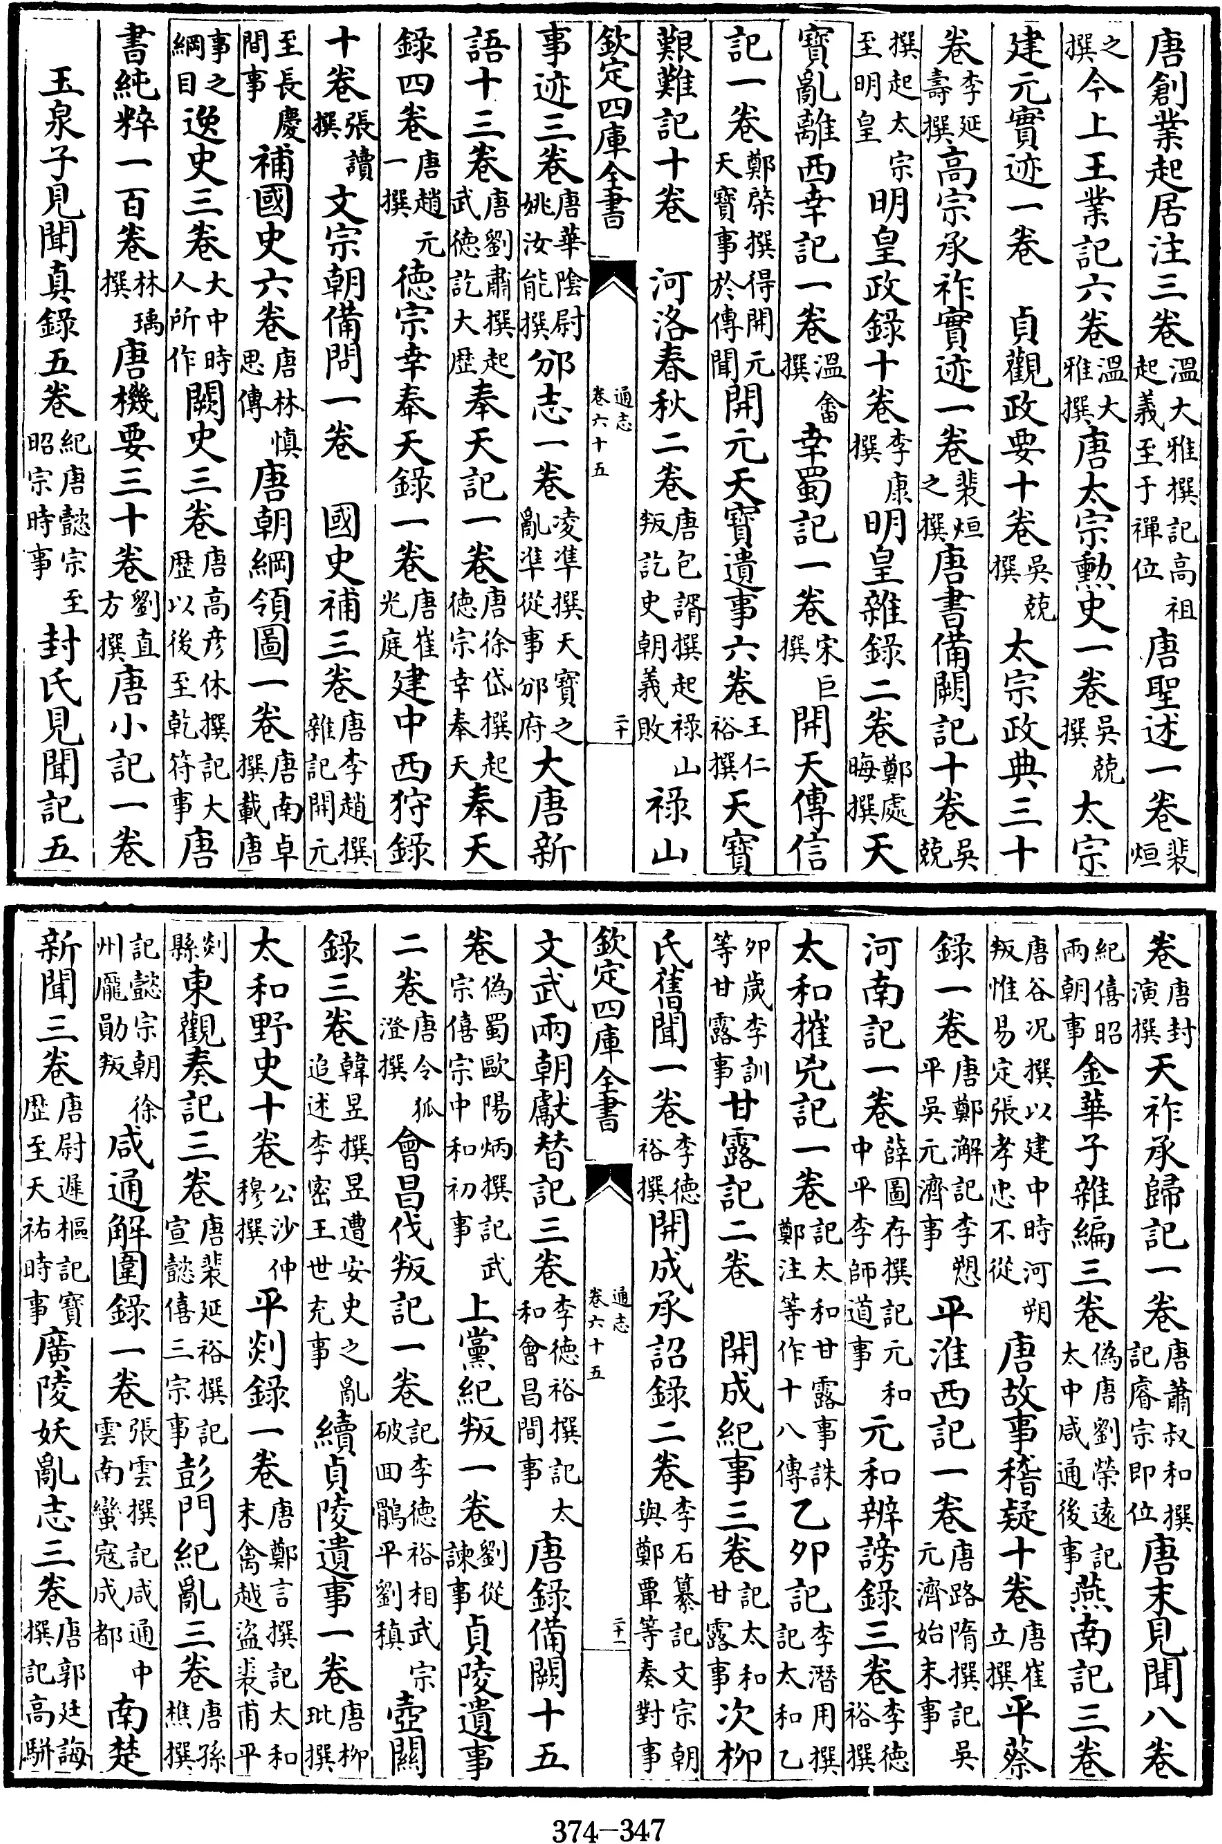 唐創業起居注三卷溫大雅撰記高祖起義至于禪位唐聖述一卷裴烜
之撰今上王業記六卷溫大雅撰唐太宗勲史一卷吳兢撰太宗
建元實迹一卷　貞觀政要十卷吳兢撰太宗政典三十
卷李延壽撰高宗承祚實迹一卷裴烜之撰唐書備闕記十卷吳兢
撰起太宗至明皇明皇政錄十卷李康撰明皇雜錄二卷鄭處晦撰天
寶亂離西幸記一卷溫畬撰幸蜀記一卷宋巨撰開天傳信
記一卷鄭棨撰得開元天寶事於傳聞開元天寶遺事六卷王仁裕撰天寶
艱難記十卷　河洛春秋二卷唐包諝撰起祿山叛訖史朝義敗祿山
欽定四庫全書　通志卷六十五　二十
事迹三卷唐華陰尉姚汝能撰邠志一卷凌準撰天寶之亂準從事邠府大唐新
語十三卷唐劉肅撰起武德訖大歷奉天記一卷唐徐岱撰起德宗幸奉天奉天
錄四卷唐趙元一撰德宗幸奉天錄一卷唐崔光庭建中西狩錄
十卷張讀撰文宗朝備問一卷　國史補三卷唐李趙撰雜記開元
至長慶間事補國史六卷唐林慎思傳唐朝綱領圖一卷唐南卓撰載唐
事之綱目逸史三卷大中時人所作闕史三卷唐高彦休撰記大歷以後至乾符事唐
書純粹一百卷林瑀撰唐機要三十卷劉直方撰唐小記一卷
玉泉子見聞真錄五卷紀唐懿宗至昭宗時事封氏見聞記五
卷唐封演撰天祚承歸記一卷唐蕭叔和撰記睿宗即位唐末見聞八卷
紀僖昭兩朝事金華子雜編三卷偽唐劉榮遠記太中咸通後事燕南記三卷
唐谷況撰以建中時河朔叛惟易定張孝忠不從唐故事稽疑十卷唐崔立撰平蔡
錄一卷唐鄭澥記李愬平吳元濟事平淮西記一卷唐路隋撰記吳元濟始末事
河南記一卷薛圖存撰記元和中平李師道事元和辨謗錄三卷李德裕撰
太和摧兇記一卷記太和甘露事誅鄭注等作十八傳乙卯記李潛用撰記太和乙
卯歲李訓等甘露事甘露記二卷　開成紀事三卷記太和甘露事次柳
氏舊聞一卷李德裕撰開成承詔錄二卷李石纂記文宗朝與鄭覃等奏對事
欽定四庫全書　通志卷六十五　二十一
文武兩朝獻替記三卷李德裕撰記太和會昌間事唐錄備闕十五
卷偽蜀歐陽炳撰記武宗僖宗中和初事上黨紀叛一卷劉從諫事貞陵遺事
二卷唐令狐澄撰會昌伐叛記一卷記李德裕相武宗破回鶻平劉稹壺關
錄三卷韓昱撰昱遭安史之亂追述李密王世充事續貞陵遺事一卷唐柳玭撰
太和野史十卷公沙仲穆撰平剡錄一卷唐鄭言撰記太和末禽越盜裘甫平
剡縣東觀奏記三卷唐裴延裕撰記宣懿僖三宗事彭門紀亂三卷唐孫樵撰
記懿宗朝徐州龐勛叛咸通解圍錄一卷張雲撰記咸通中雲南蠻寇成都南楚
新聞三卷唐尉遲樞記寶歷至天祐時事廣陵妖亂志三卷唐郭廷誨撰記高駢
374-347